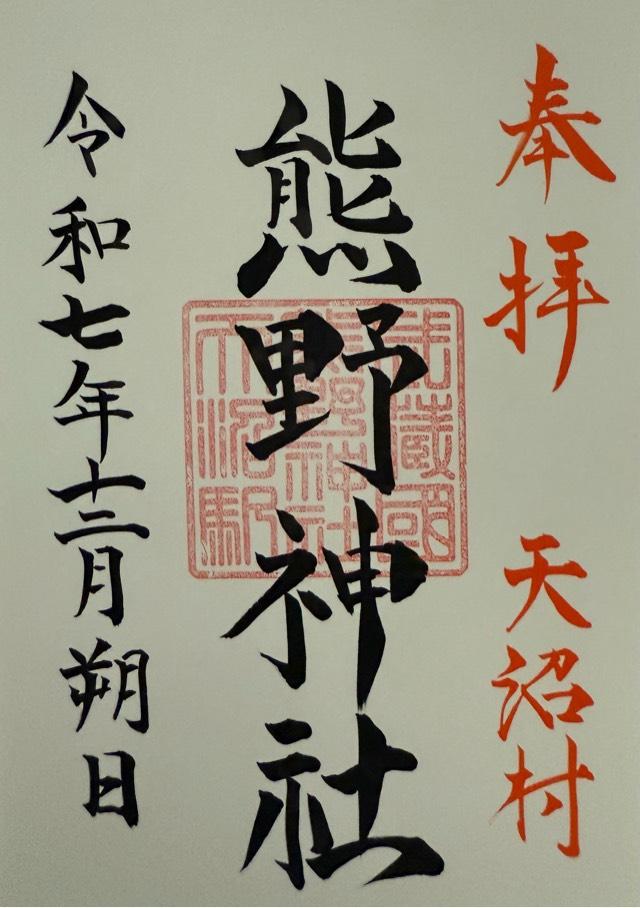 奉拝 天沼村
熊野神社
武蔵國
熊野神社
天沼駅
令和七年十二月朔日